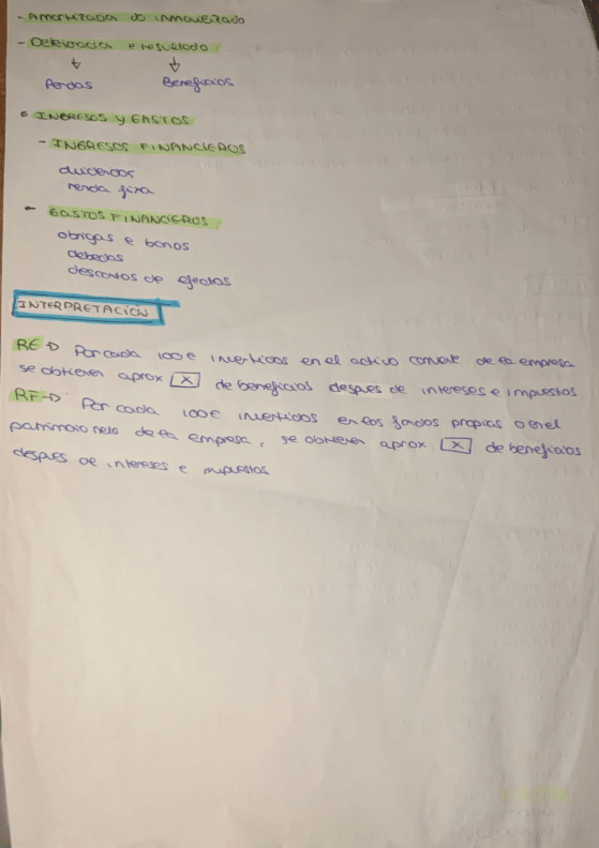 - Amortización do inmovilizado
- Deterioración e resultado
↓ ↓
Perdas Beneficios
• INGRESOS y GASTOS
- INGRESOS FINANCIEROS
dividendos
renda fixa
- GASTOS FINANCIEROS
obrigas e bonos
debedas
descontos de efectos
INTERPRETACIÓN
RE → Por cada 100€ invertidos en el activo corriente de la empresa
se obtienen aprox [X] de beneficios despues de intereses e impuestos
RF → Por cada 100€ invertidos en los fondos propios o en el
patrimonio neto de la empresa, se obtienen aprox [X] de beneficios
despues de intereses e impuestos